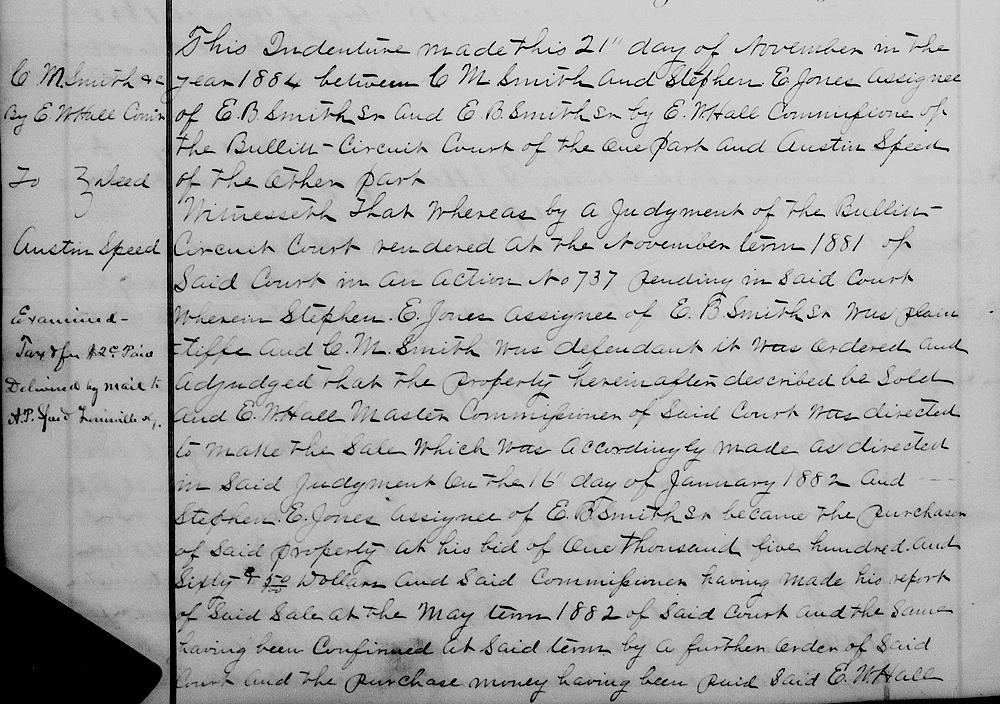 C M Smith &c
By E. W Hall Comr
To } Deed
Austin Speed
Examined -
Tax & fee $2 Paid
Delivered by mail to
A. P. Speed Louisville Ky.
This Indenture made this 21" day of November in the
year 1884 between C M Smith and Stephen E Jones assignee
of E. B. Smith Sr and E. B. Smith Sr by E. W. Hall Commissione of
the Bullitt Circuit Court of the one part and Austin Speed
of the other part
Witnesseth That Whereas by a Judgment of the Bullitt
Circuit Court rendered at the November term 1881 of
Said Court in an action No 737 pending in Said Court
Wherein Stephen. E. Jones assignee of E. B Smith Sr was plain
tiffs and C. M. Smith was defendant it was ordered and
adjudged that the property hereinafter described be Sold
and E. W. Hall Master Commissioner of Said Court was directed
to make the Sale which was accordingly made as directed
in Said Judgment on the 16" day of January 1882 and
Stephen. E. Jones assignee of E. B Smith Sr became the purchaser
of Said property at his bid of One thousand five hundred and
Sixty & 50/100 Dollars and Said Commissioner having made his report
of Said Sale at the May term 1882 of Said Court and the Same
having been Confirmed at Said term by a further order of Said
Court and the purchase money having been paid Said E. W. Hall